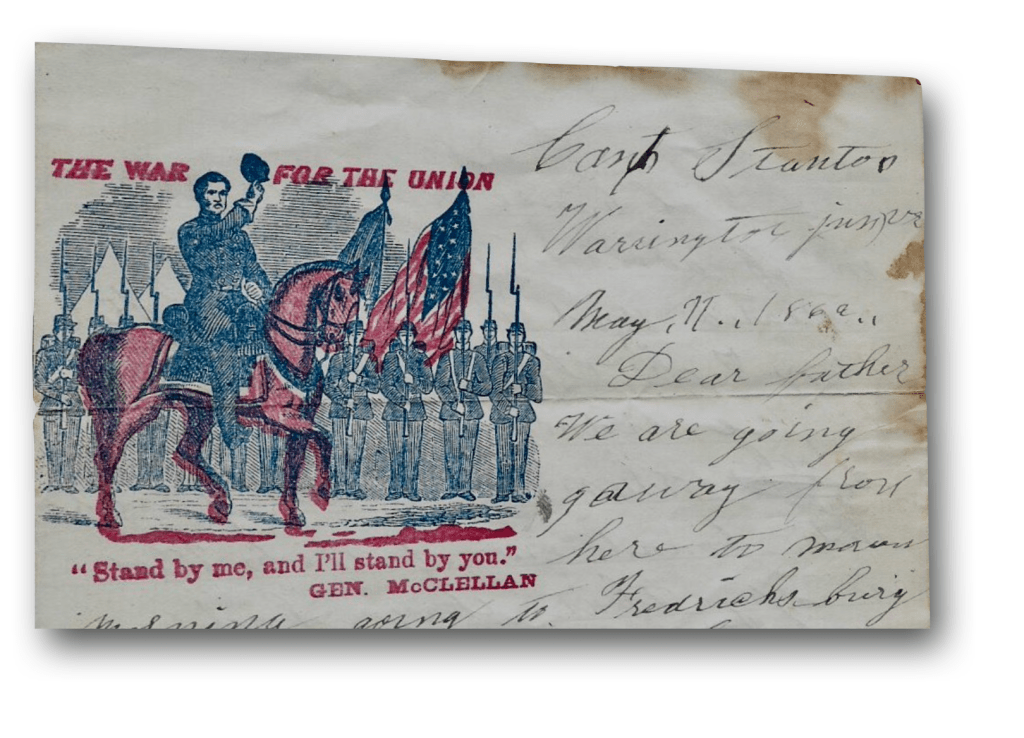 THE WAR FOR THE UNION
"Stand by me, and I'll stand by you."
GEN. McCLELLAN
Camp Stanton
Warrington
May, 11., 1862.,
Dear father
We are going
from
here to
morning going to Fredrichsburg